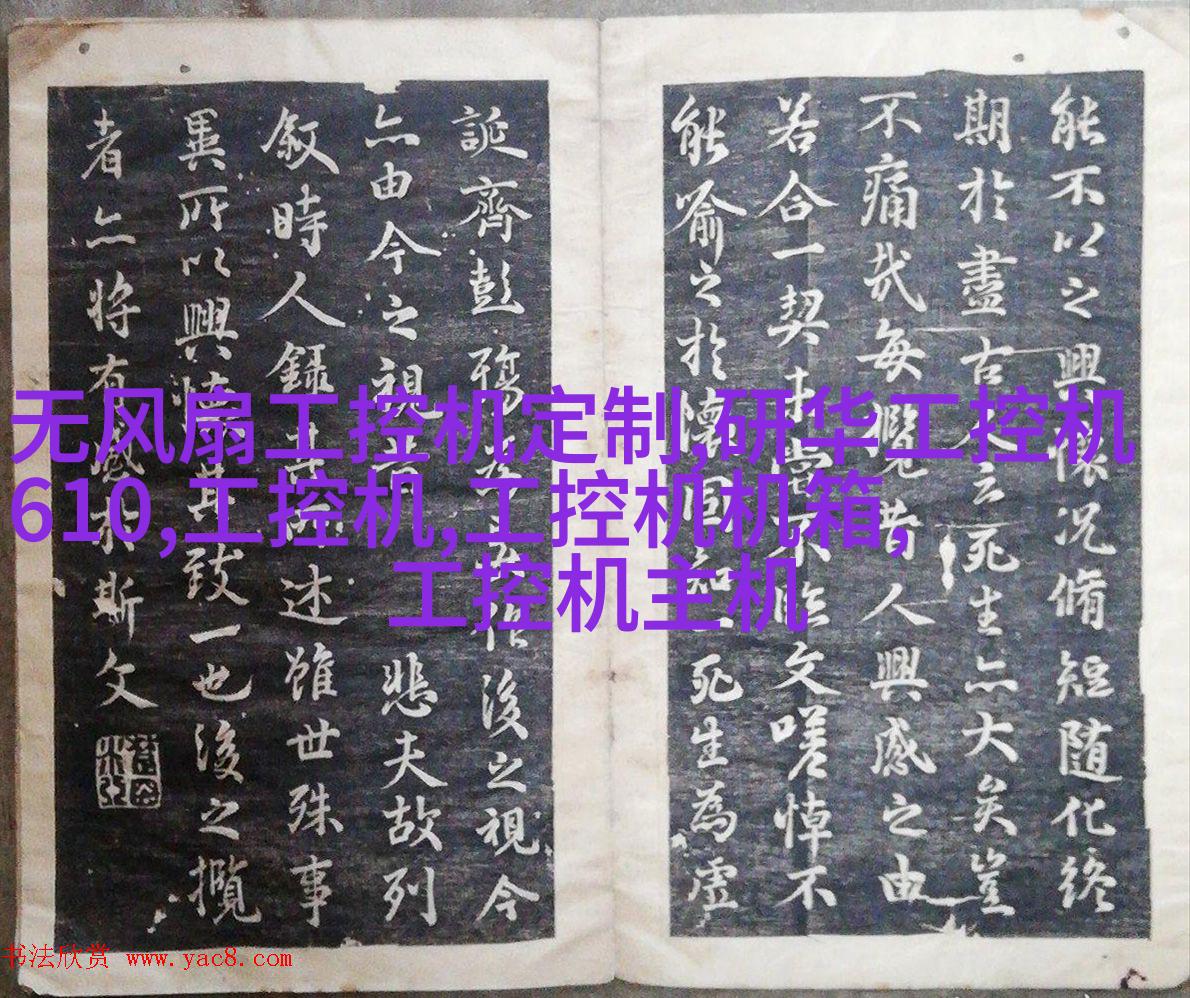 能不以之興懷况脩短随化終
期於盡古人云死生亦大矣豈
不痛哉每攬昔人興感之由
若合一契未嘗不臨文嗟悼不
能喻之於懷固知一死生為虛
誕齊彭殤為妄作後之視今
亦由今之視昔悲夫故列
叙時人錄其所述雖世殊事
異所以興懷其致一也後之攬
者亦将有感於斯文
无风扇工控机定制,研华工控机
610,工控机,工控机机箱,
工控机主机
书法欣赏 www.yac8.com